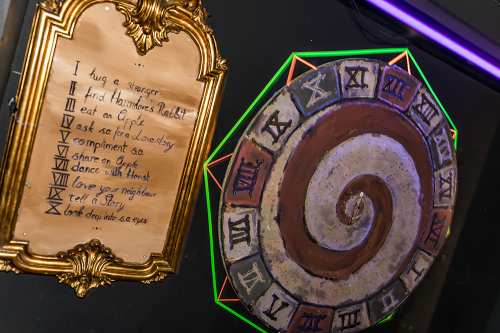 I hug a stranger
II find Hazmdove's Rabbit
III eat an Apple
IV ask so for a Lovestory
V compliment so
VI share an Apple
VII dance with Horst
VIII love your neighbour
IX tell a Story
X look deep into so eyes
XI
XII
XIII
X
IX
VIII
VII
VI
V
III
II
I